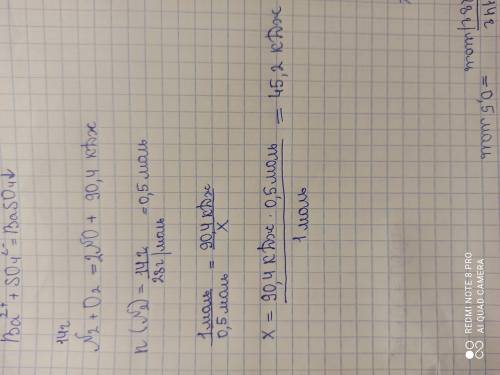 Ba²⁺ + SO₄²⁻ = BaSO₄↓
14г
N₂ + O₂ = 2NO + 90,4 кДж
n (N₂) = 14г / 28г/моль = 0,5 моль
1 моль / 0,5 моль = 90,4 кДж / x
x = 90,4 кДж · 0,5 моль / 1 моль = 45,2 кДж
= 0,5 моль
REDMI NOTE 8 PRO
AI QUAD CAMERA